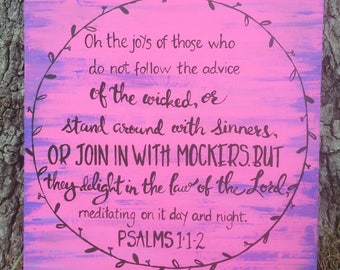 Oh the joys of those who
do not follow the advice
of the wicked, or
stand around with sinners,
OR JOIN IN WITH MOCKERS. BUT
they delight in the law of the Lord,
meditating on it day and night.
PSALMS 1:1-2